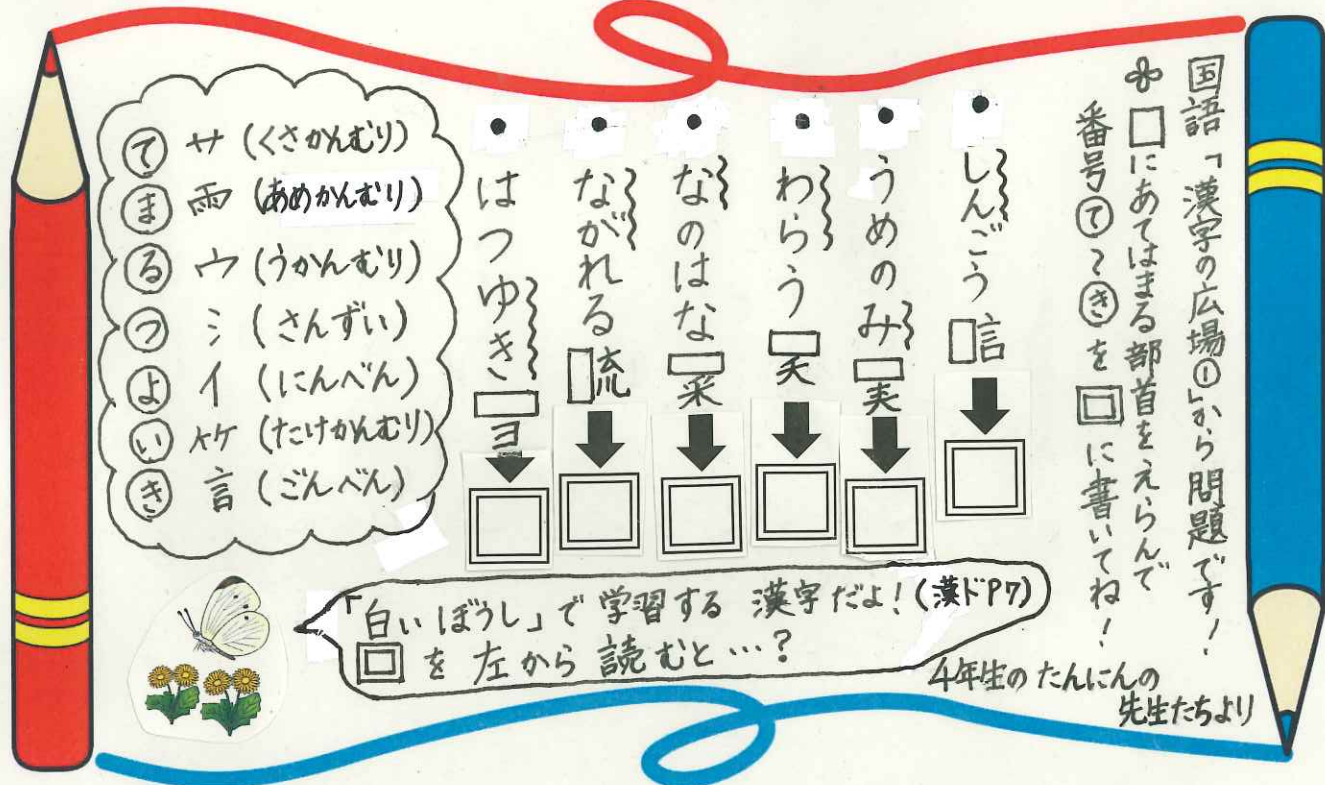 国語「漢字の広場①」から問題です!
□にあてはまる部首をえらんで
番号て〜きを回に書いてね!
● しんごう □言
● うめのみ □実
● わらう □夭
● なのはな □采
● ながれる □㐬
● はつゆき □ヨ
て サ (くさかんむり)
ま 雨 (あめかんむり)
る ウ (うかんむり)
つ シ (さんずい)
よ イ (にんべん)
い 竹 (たけかんむり)
き 言 (ごんべん)
「白いぼうし」で学習する漢字だよ!(漢ドP7)
回を左から読むと…?
4年生のたんにんの
先生たちより